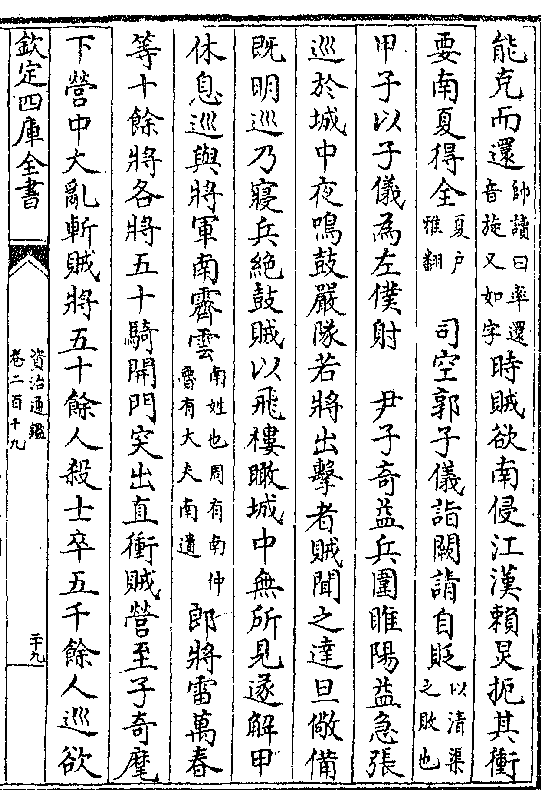 能克而還帥讀曰率還音旋又如字時賊欲南侵江漢賴炅扼其衝
要南夏得全夏户雅翻　司空郭子儀詣闕請自貶以清渠之敗也
甲子以子儀為左僕射　尹子奇益兵圍睢陽益急張
巡於城中夜鳴鼓嚴隊若將出擊者賊聞之達旦儆備
既明巡乃寢兵絶鼓賊以飛樓瞰城中無所見遂解甲
休息巡與將軍南霽雲南姓也周有南仲魯有大夫南遺郎將雷萬春
等十餘將各將五十騎開門突出直衝賊營至子奇麾
下營中大亂斬賊將五十餘人殺士卒五千餘人巡欲
欽定四庫全書
資治通鑑
卷二百十九
二十九